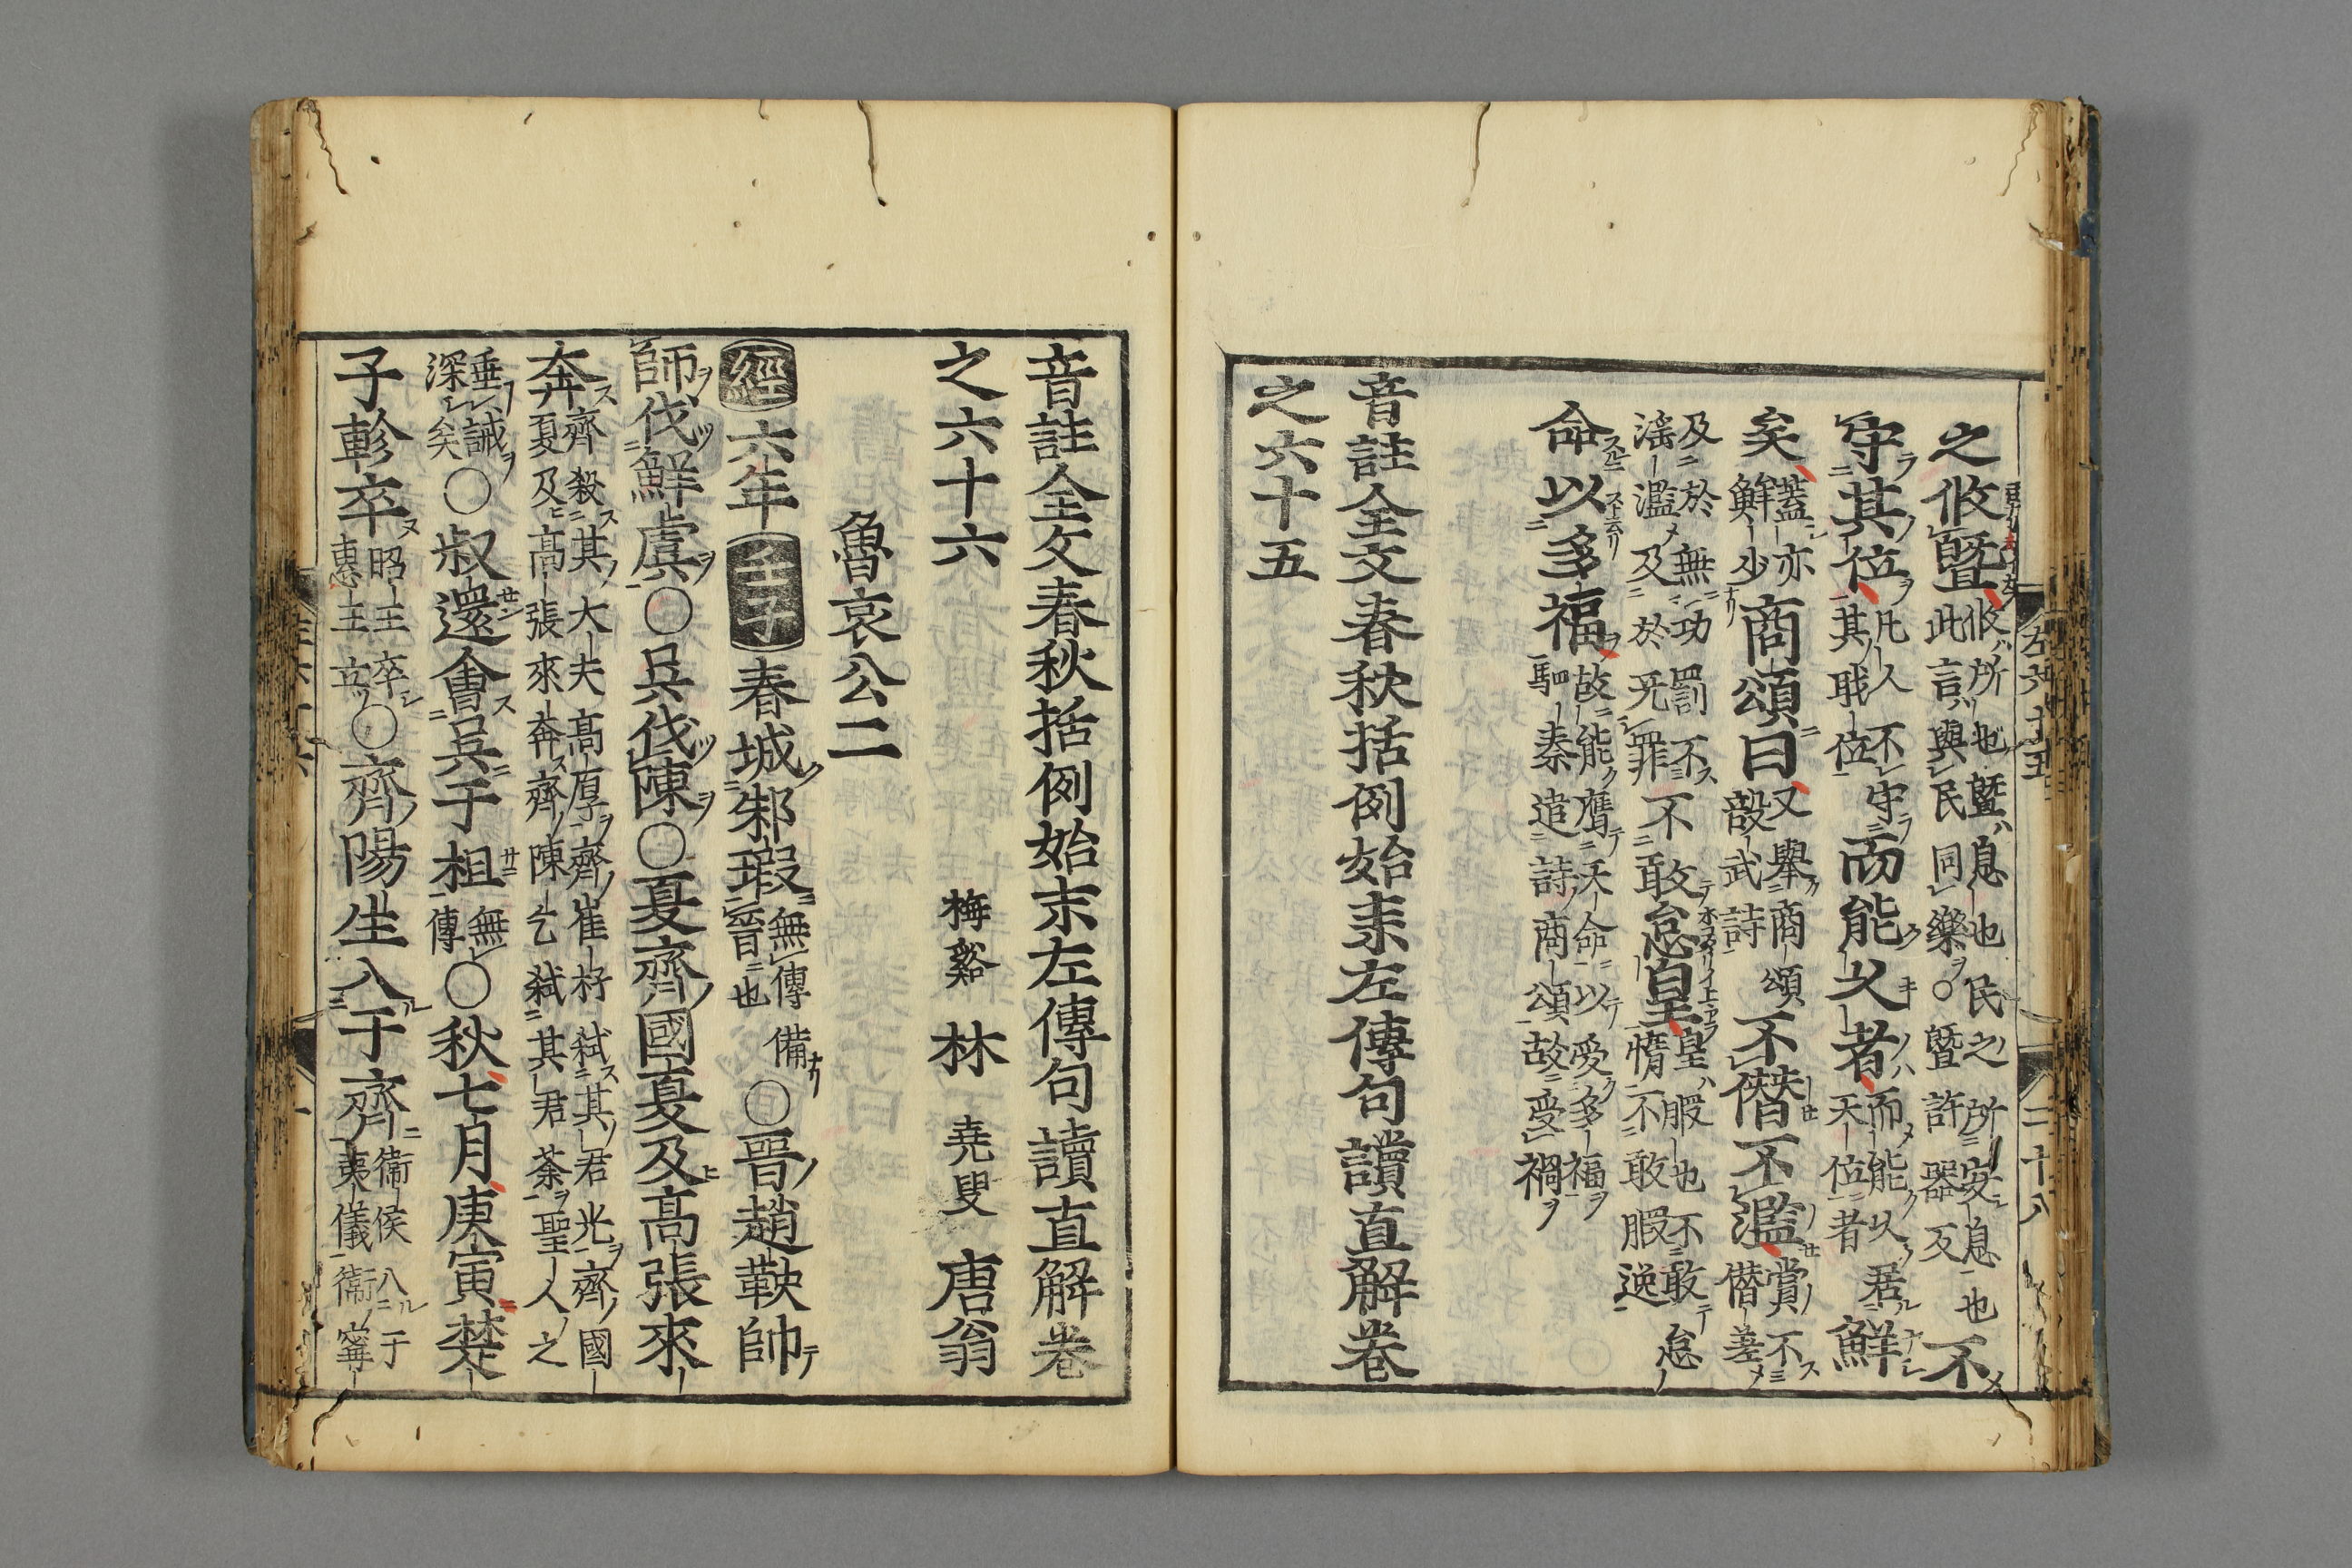 左六十五　二十八
之攸曁攸所也曁息也民之所安息也此言與民同樂○曁許器反不
守其位凡人不守其職位而能久者而能久居天位者鮮
矣蓋亦鮮少商頌曰又舉商頌殷武詩不僭不濫賞不僭差
及於無功罰不滛濫及於无罪不敢怠皇皇暇也不敢怠惰不敢暇逸
命以多福故能膺天命以受多福駟秦造詩商頌故受禍
音註全文春秋括例始末左傳句讀直解卷
之六十五
音註全文春秋括例始末左傳句讀直解卷
之六十六　梅谿　林　堯叟　唐翁
魯哀公二
經六年壬子春城邾瑕無傳備晉也○晉趙鞅帥
師伐鮮虞○吳伐陳○夏齊國夏及高張來
奔齊殺其大夫高厚齊崔杼弑其君光齊國夏及高張來奔齊陳乞弑其君荼聖人之
垂誡深矣○叔還會吳于柤無傳○秋七月庚寅楚
子軫卒昭王卒惠王立○齊陽生入于齊衛侯入于夷儀衛甯